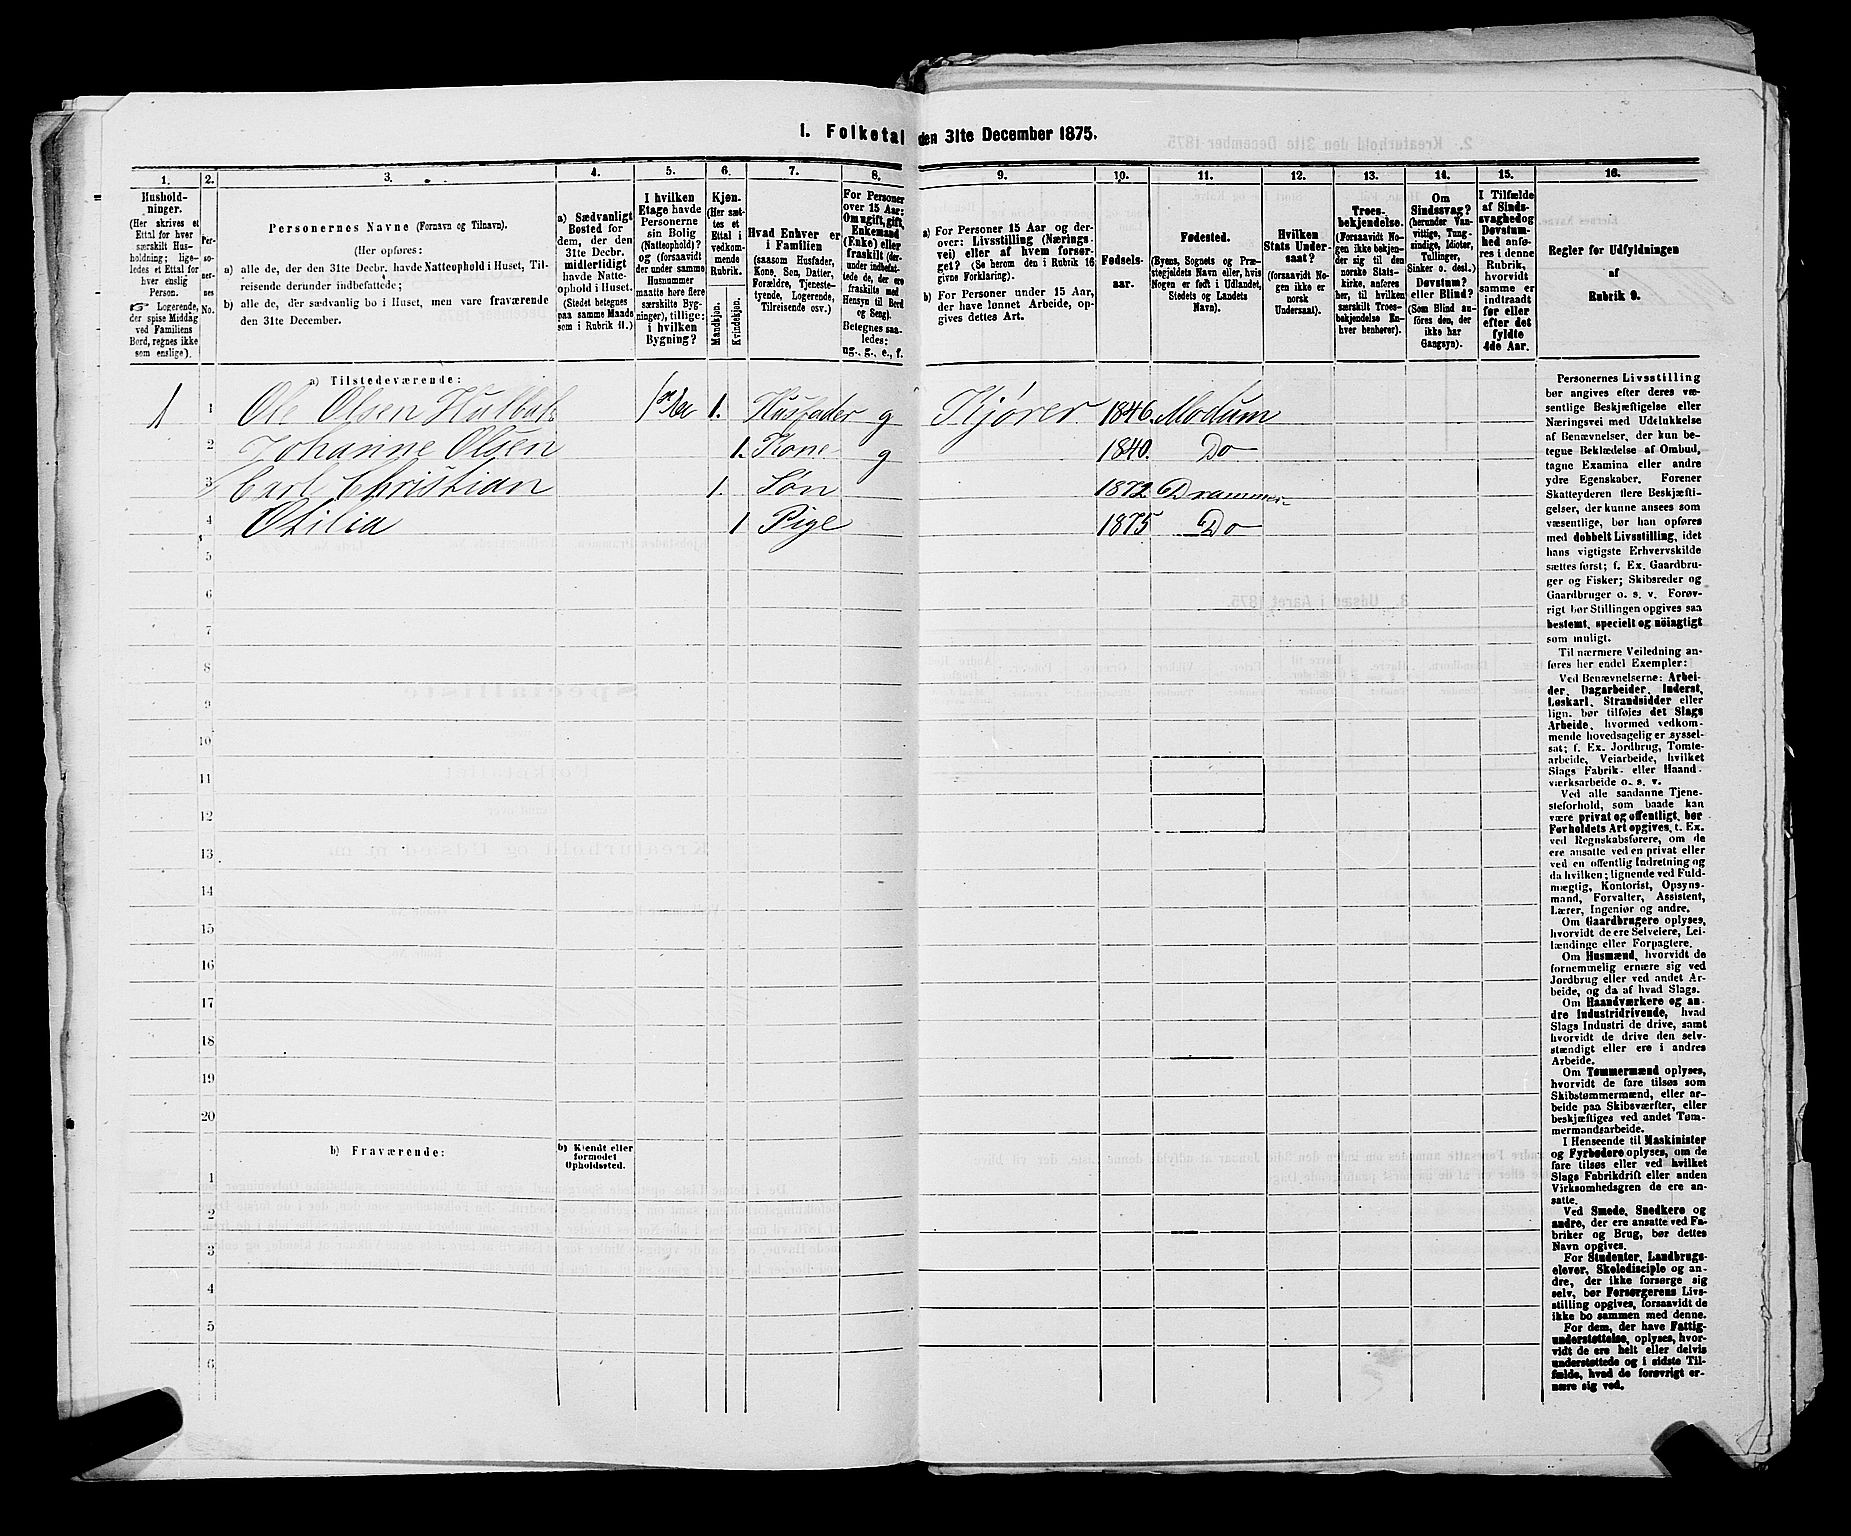 1. Folketal den 31te December 1875.
1. 2. 3. 4. 5. 6. 7. 8. 9. 10. 11. 12. 13. 14. 15. 16.
Hushold-
ninger.
(Her skrives et
Ettal for hver
særskilt Hus-
holdning; lige-
ledes et Ettal for
hver enslig
Person.
Logerende,
der spise Middag
ved Familiens
Bord, regnes ikke
som enslige).
Per-
so-
ner-
nes
No.
Personernes Navne (Fornavn og Tilnavn).
(Her opføres:
a) alle de, der den 31te Decbr. havde Natteophold i Huset, Til-
reisende derunder indbefattede;
b) alle de, der sædvanlig bo i Huset, men vare fraværende
den 31te December.
a) Sædvanligt
Bosted for
dem, der den
31te Decbr.
midlertidigt
havde Natte-
ophold i Huset.
(Stedet betegnes
paa samme Maade
som i Rubrik 11.)
I hvilken
Etage havde
Personerne
sin Bolig
(Natteophold)?
og (forsaavidt
der under samme
Husnummer
maatte høre flere
særskilte Byg-
ninger), tillige:
i hvilken
Bygning?
Kjøn.
(Her sæt-
tes et
Ettal i
vedkom-
mende
Rubrik.
Mandkjøn.
Kvindekjøn.
Hvad Enhver er
i Familien
(saasom Husfader,
Kone, Søn, Datter,
Forældre, Tjeneste-
tyende, Logerende,
Tilreisende osv.)
For Personer
over 15 Aar:
Om ugift, gift,
Enkemand
(Enke) eller
fraskilt (der-
under indbefat-
tede de, der ere
fraskilte med
Hensyn til Bord
og Seng).
Betegnes saa-
ledes:
ug., g., e., f.
a) For Personer 15 Aar og der-
over: Livsstilling (Nærings-
vei) eller af hvem forsør-
get? (Se herom den i Rubrik 16
givne Forklaring).
b) For Personer under 15 Aar,
der have lønnet Arbeide, op-
gives dettes Art.
Fødsels-
aar.
Fødested.
(Byens, Sognets og Præ-
stegjeldets Navn eller, hvis
Nogen er født i Udlandet,
Stedets og Landets
Navn).
Hvilken
Stats Under-
saat?
(forsaavidt No-
gen ikke er
norsk
Undersaat).
Troes-
bekjendelse.
(Forsaavidt No-
gen ikke bekjen-
der sig til den
norske Stats-
kirke, anføres
her, til hvilken
særskilt Troes-
bekjendelse En-
hver henhører).
Om
Sindssvag?
(herunder Van-
vittige, Tung-
sindige, Idioter,
Tullinger,
Sinker o. desl.)
Døvstum?
eller Blind?
(Som Blind an-
føres den, der
ikke har
Gangsyn).
I Tilfælde
af Sinds-
svaghed og
Døvstum-
hed anfø-
res i denne
Rubrik,
hvorvidt
samme er
indtraadt
før eller
efter det
fyldte
4de Aar.
Regler for Udfyldningen
af
Rubrik 9.
a) Tilstedeværende:
1 1 Ole Olsen 1. Husfader g Kjører 1846. Modum
2 Johanne Olsen 1. Kone g 1840. Do
3 Carl Christian 1. Søn 1872 Drammen
4 Otilia 1 Pige 1875 Do
5
6
7
8
9
10
11
12
13
14
15
16
17
18
19
20
b) Fraværende:
b) Kjendt eller
formodet
Opholdssted.
1
2
3
4
5
6
Personernes Livsstilling
bør angives efter deres væ-
sentlige Beskjæftigelse eller
Næringsvei med Udelukkelse
af Benævnelser, der kun be-
tegne Beklædelse af Ombud,
tagne Examina eller andre
ydre Egenskaber. Forener
Skatteyderen flere Beskjæfti-
gelser, der kunne ansees som
væsentlige, bør han opføres
med dobbelt Livsstilling, idet
hans vigtigste Erhvervskilde
sættes først; f. Ex. Gaardbru-
ger og Fisker; Skibsreder og
Gaardbruger o. s. v. Forøv-
rigt bør Stillingen opgives saa
bestemt, specielt og nöiagtigt
som muligt.
Til nærmere Veiledning an-
føres her endel Exempler:
Ved Benævnelserne: Arbei-
der, Dagarbeider, Inderst,
Løskarl, Strandsidder eller
lign. bør tilføies det Slags
Arbeide, hvormed vedkom-
mende hovedsagelig er syssel-
sat; f. Ex. Jordbrug, Tomte-
arbeide, Veiarbeide, hvilket
Slags Fabrik- eller Haand-
værksarbeide o. s. v.
Ved alle saadanne Tjene-
steforhold, som baade kan
være privat og offentligt, bør
Forholdets Art opgives, t. Ex.
ved Regnskabsførere, om de
ere ansatte ved en privat eller
ved en offentlig Indretning og
da hvilken; lignende ved Fuld-
mægtig, Kontorist, Opsyns-
mand, Forvalter, Assistent,
Lærer, Ingeniør og andre.
Om Gaardbrugere oplyses,
hvorvidt de ere Selveiere, Lei-
lændinge eller Forpagtere.
Om Husmænd, hvorvidt de
fornemmelig ernære sig ved
Jordbrug eller ved andet Ar-
beide, og da af hvad Slags.
Om Haandværkere og an-
dre Industridrivende, hvad
Slags Industri de drive, samt
hvorvidt de drive den selv-
stændigt eller ere i andres
Arbeide.
Om Tømmermænd oplyses,
hvorvidt de fare tilsøs som
Skibstømmermænd, eller ar-
beide paa Skibsværfter, eller
beskjæftiges ved andet Tøm-
mermandsarbeide.
I Henseende til Maskinister
og Fyrbødere oplyses, om de
fare tilsøs eller ved hvilket
Slags Fabrikdrift eller anden
Virksomhedsgren de ere an-
satte.
Ved Smede, Snedkere og
andre, der ere ansatte ved Fa-
briker og Brug, bør dettes
Navn opgives.
For Studenter, Landbrugs-
elever, Skoledisciple og an-
dre, der ikke forsørge sig
selv, bør Forsørgerens Livs-
stilling opgives, forsaavidt de
ikke bo sammen med denne.
For dem, der have Fattig-
understøttelse, oplyses, hvor-
vidt de ere helt eller delvis
understøttede og i sidste Til-
fælde, hvad de forøvrigt er-
nære sig ved.